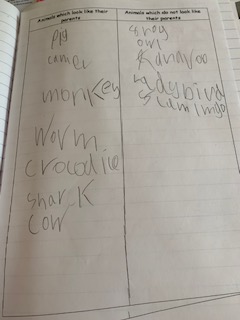 Animals which look like their parents
Animals which do not look like their parents
pig
camel
monkey
worm
crocodile
shark
cow
owl
ladybird